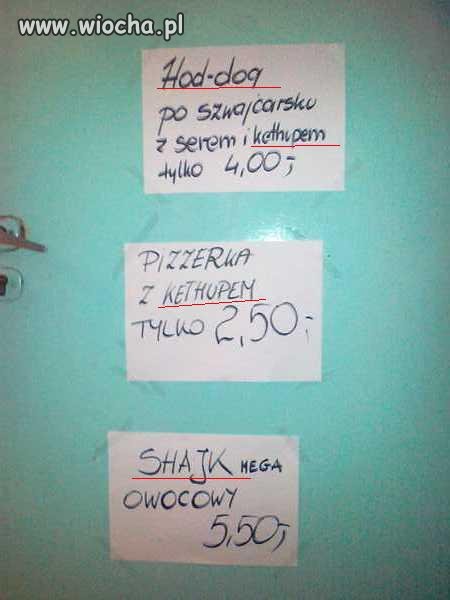 www.wiocha.pl
Hod-dog
po szwajcarsku
z serem i kethupem
tylko 4,00,-
PIZZERKA
Z KETHUPEM
TYLKO 2,50,-
SHAJK MEGA
OWOCOWY
5,50,-